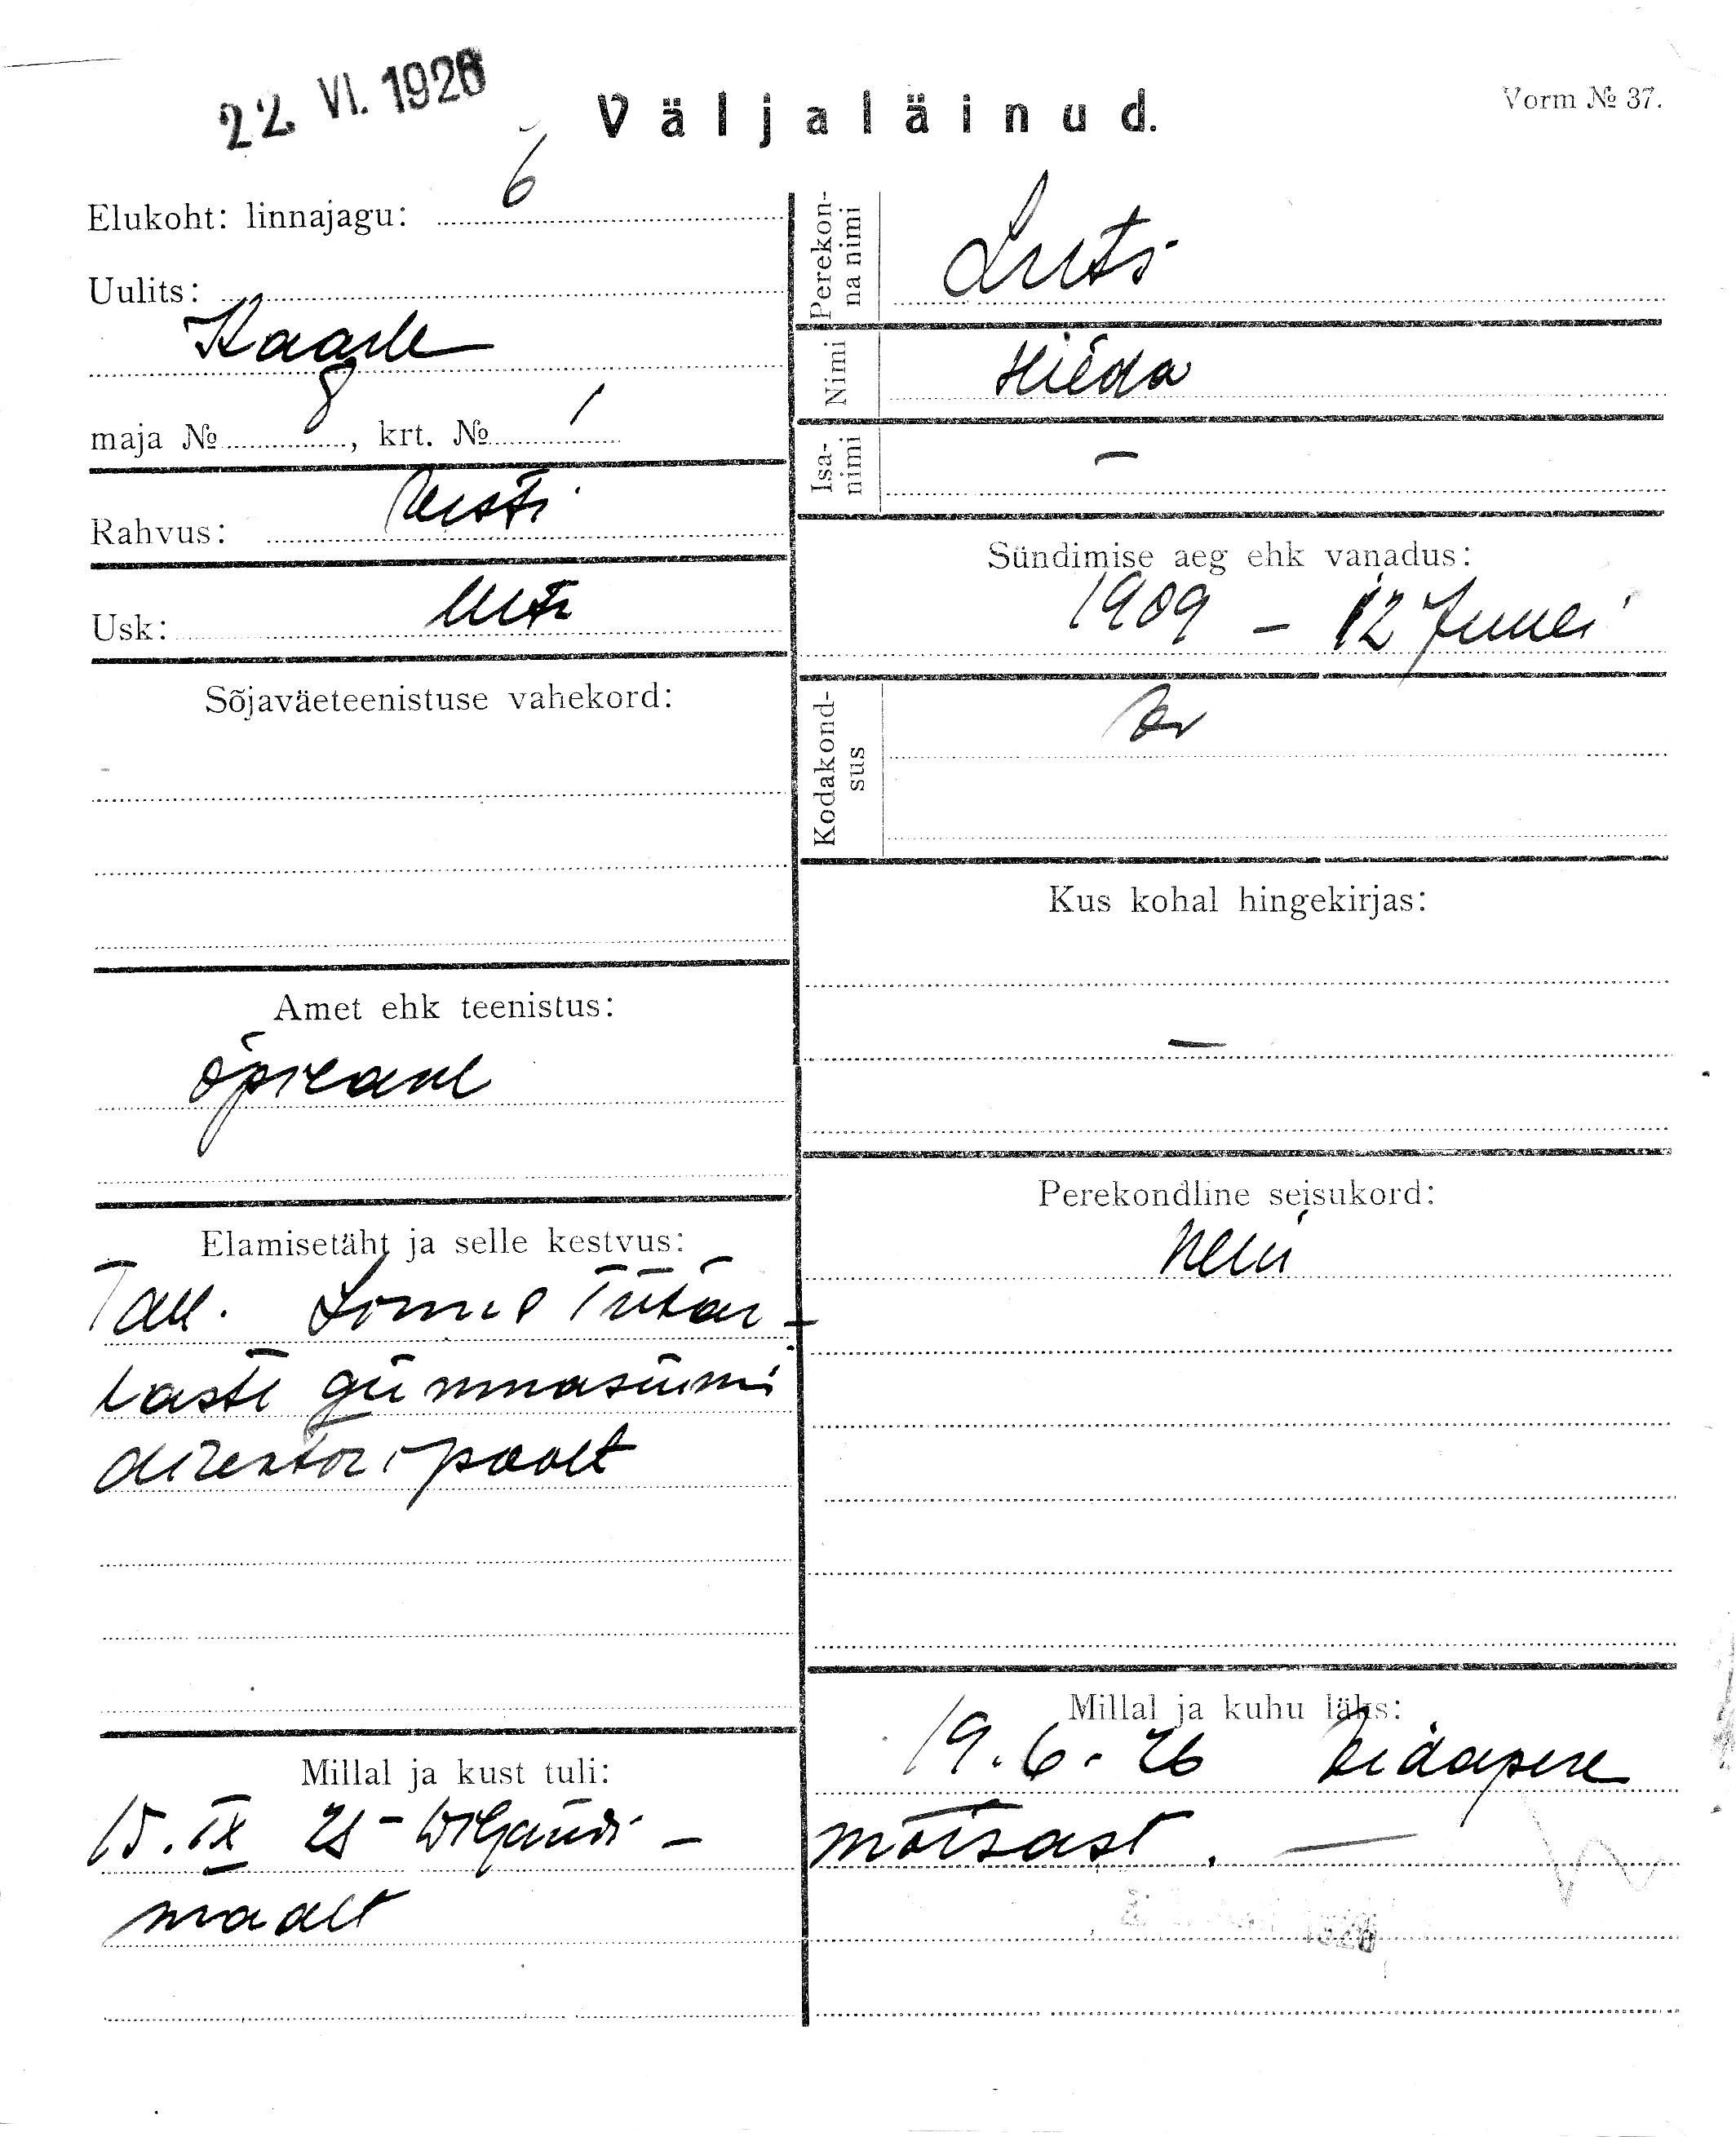 22. VI. 1926
Väljaläinud.
Vorm № 37.
Elukoht: linnajagu: 6
Uulits:
Kaarle
maja № 8, krt. № 1
Rahvus: Eesti
Usk: luts
Sõjaväeteenistuse vahekord:
Amet ehk teenistus:
õpilane
Elamisetäht ja selle kestvus:
Tall. Linna Tütar-
laste gümnasiumi
direktori poolt
Millal ja kust tuli:
15. IX 25 - Wiljandi -
maalt
Perekon-
na nimi
Luts
Nimi
Hilda
Isa-
nimi
—
Sündimise aeg ehk vanadus:
1909 - 12 Juuni
Kodakond-
sus
Ee
Kus kohal hingekirjas:
—
Perekondline seisukord:
neiu
Millal ja kuhu läks:
19. 6. 26
mõisast. —